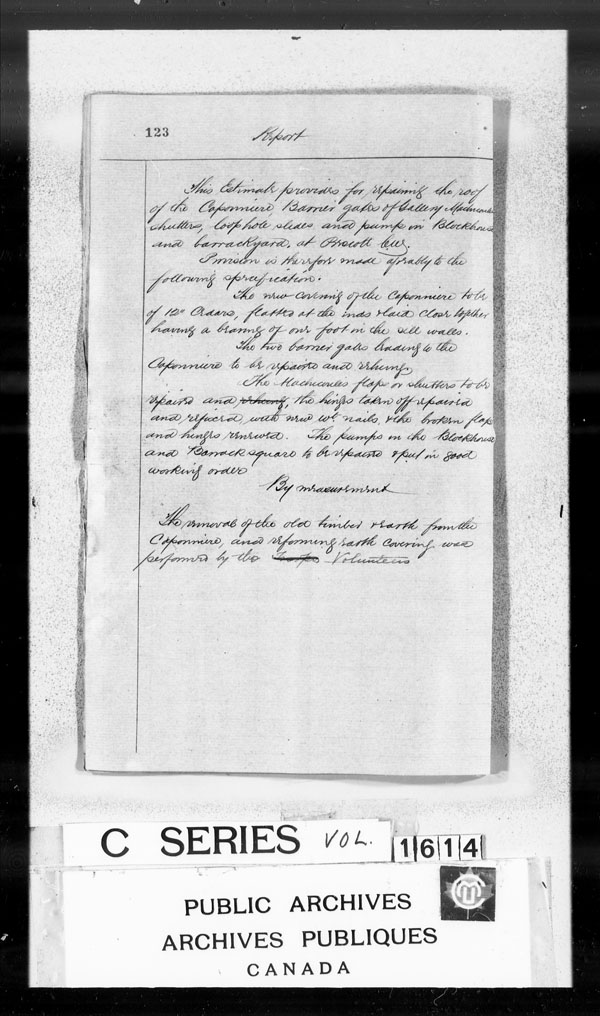 123
Report
This Estimate provides for repairing the roof
of the Caponniere Barrier gates of Gallery Machicoulis
shutters, loophole slides and pumps in Blockhouse
and barrackyard, at Prescott
Provision is therefore made agreeably to the
following specification.
The new covering of the Caponniere to be
of 12" Cedars, flatted at the ends & laid close together
having a bearing of one foot in the sill walls.
The two barrier gates leading to the
Caponniere to be repaired and rehung.
The Machicoulis flaps or shutters to be
repaired and rehung, the hinges taken off repaired
and refixed with new wt. nails, & the broken flaps
and hinges renewed. The pumps in the Blockhouse
and Barrack square to be repaired & put in good
working order
By measurement
The removal of the old timber & earth from the
Caponniere, and reforming earth covering was
performed by the Troops Volunteers
C SERIES VOL. 1614
PUBLIC ARCHIVES
ARCHIVES PUBLIQUES
CANADA